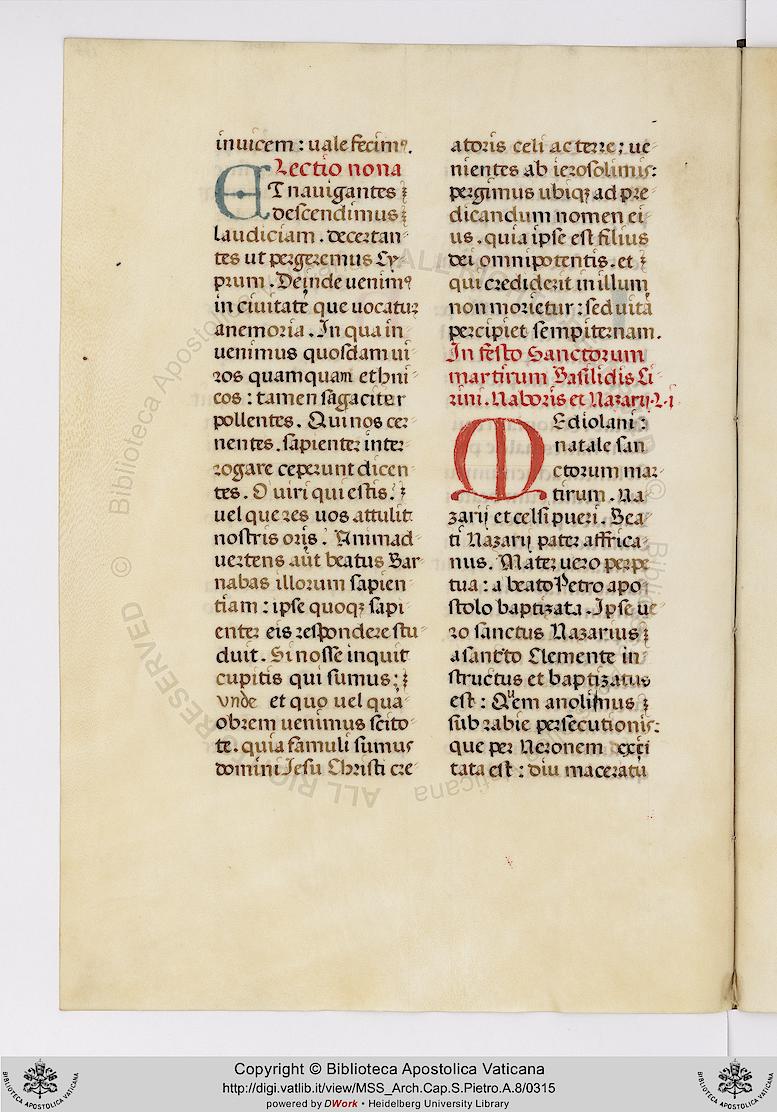 inuicem : uale fecimꝰ.
Lectio nona
ET nauigantes ⁊
descendimus ⁊
laudiciam . decertan-
tes ut pergeremus Cy-
prum . Deinde uenimꝰ
in ciuitatē que uocatur
anemoria . In qua in-
uenimus quosdam ui-
ros quamquam ethni-
cos : tamen sagaciter
pollentes . Qui nos cer-
nentes . sapienter inter-
rogare ceperunt dicen-
tes . O uiri qui estis : ⁊
uel que res uos attulit
nostris oris ? Animad-
uertens aūt beatus Bar-
nabas illorum sapien-
tiam : ipse quoqꝫ sapi-
enter eis respondere stu-
duit . Si nosse inquit
cupitis qui sumus : ⁊
vnde et quo uel qua-
obrem uenimus scito-
te . quia famuli sumus
domini Iesu Christi cre-
atoris celi ac terre : ue-
nientes ab ierosolimis :
pergimus ubiqꝫ ad pre-
dicandum nomen ei-
us . quia ipse est filius
dei omnipotentis . et ⁊
qui crediderit in illum
non morietur : sed uitā
percipiet sempiternam .
In festo Sanctorum
martirum Basilidis Ci-
rini . Naboris et Nazarij . L . i
MEdiolani :
natale san-
ctorum mar-
tirum . Na-
zarij et celsi pueri . Bea-
ti Nazarij pater affrica-
nus . Mater uero perpe-
tua : a beato Petro apo-
stolo baptizata . Ipse ue-
ro sanctus Nazarius ⁊
a sancto Clemente in-
structus et baptizatus
est : Quem anolinus ⁊
sub rabie persecutionis :
que per Neronem exci-
tata est : diu maceratū
Copyright © Biblioteca Apostolica Vaticana
http://digi.vatlib.it/view/MSS_Arch.Cap.S.Pietro.A.8/0315
powered by DWork • Heidelberg University Library